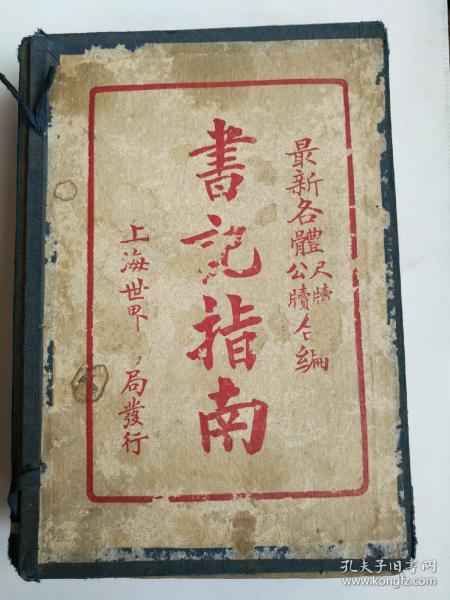 最新各體尺牘公牘合編
書記指南
上海世界局發行
孔夫子旧书网
www.kongfz.com